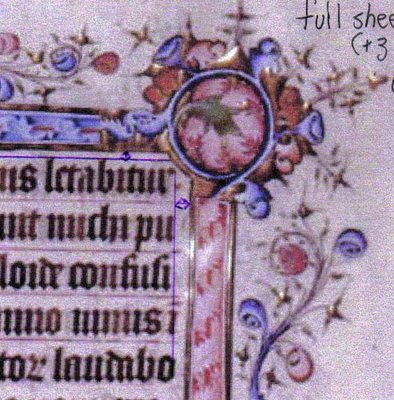 full shee
(+3
us letabitur
unt michi pu
loide confusi
mino nimis i
tor laudabo